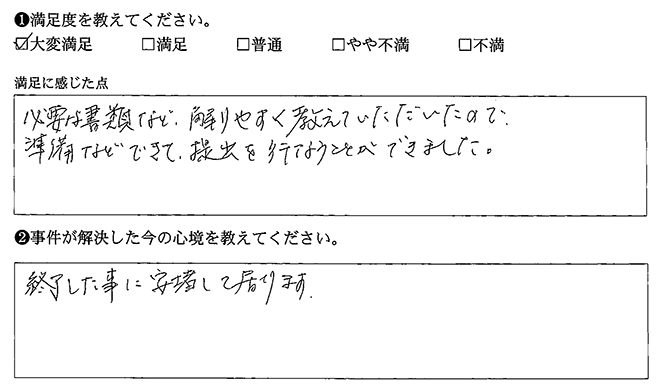 ❶満足度を教えてください。
☑大変満足 □満足 □普通 □やや不満 □不満
満足に感じた点
必要な書類など、解りやすく教えていただいたので、
準備などできて、提出を行なうことができました。
❷事件が解決した今の心境を教えてください。
終了した事に安堵して居ります.